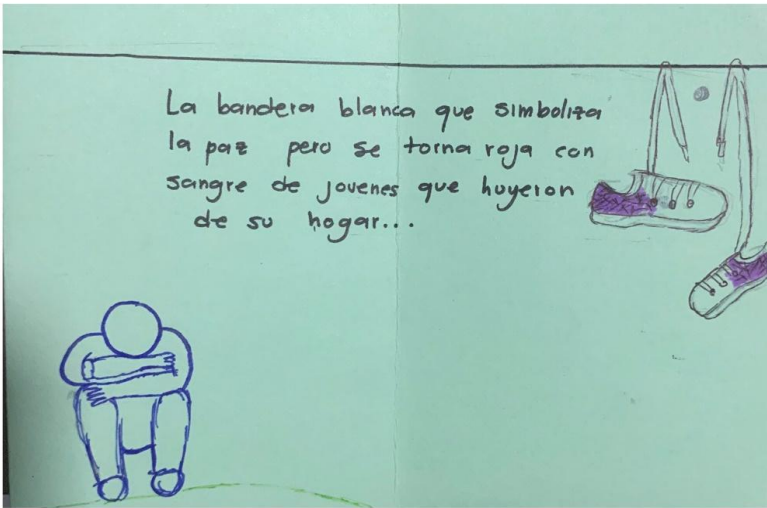 La bandera blanca que simboliza
la paz pero se torna roja con
sangre de jovenes que huyeron
de su hogar...